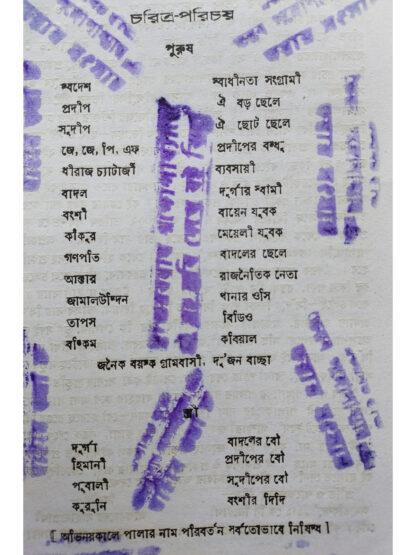 চরিত্র-পরিচয়
পুরুষ
স্বদেশ স্বাধীনতা সংগ্রামী
প্রদীপ ঐ বড় ছেলে
সন্দীপ ঐ ছোট ছেলে
জে, জে, পি, এফ প্রদীপের বন্ধু
ধীরাজ চ্যাটার্জী ব্যবসায়ী
বাদল দুর্গার স্বামী
বংশী বায়েন যুবক
কাঁকুর মেয়েলী যুবক
গণপতি বাদলের ছেলে
আক্তার রাজনৈতিক নেতা
জামালউদ্দিন থানার ওসি
তাপস বিডিও
বঙ্কিম কবিয়াল
জনৈক বয়স্ক গ্রামবাসী, দু'জন বাচ্ছা
স্ত্রী
দুর্গা বাদলের বৌ
হিমানী প্রদীপের বৌ
পূবালী সন্দীপের বৌ
করুনি বংশীর দিদি
[ অভিনয়কালে পালার নাম পরিবর্তন সর্বতোভাবে নিষিদ্ধ ]